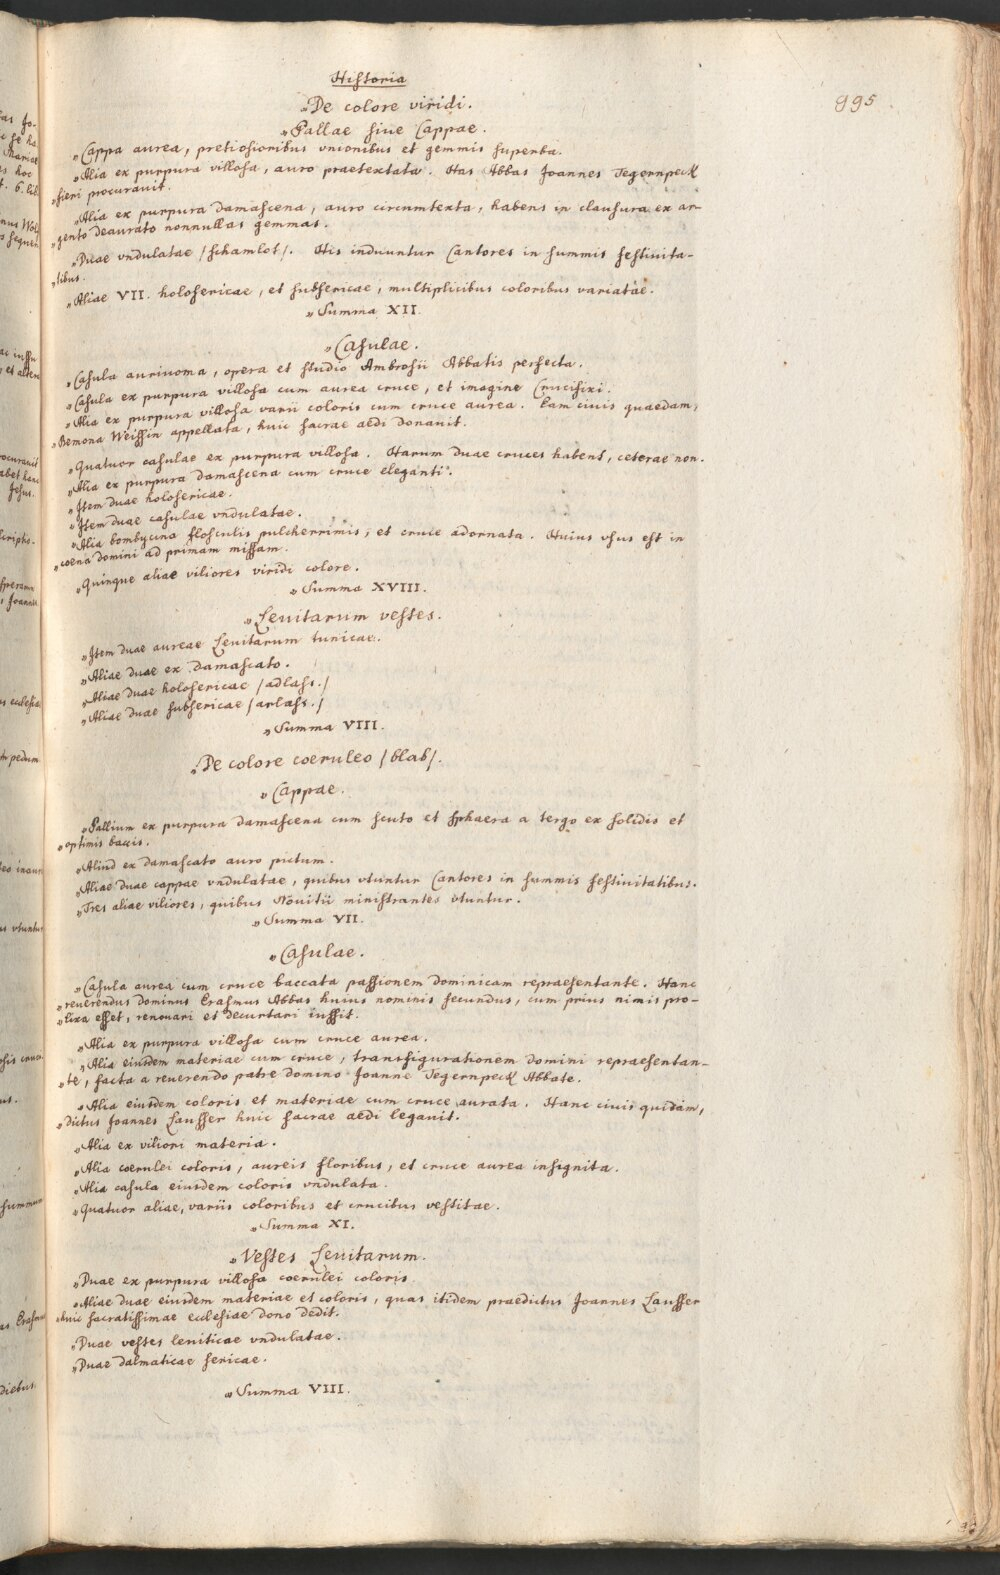 Historia
995
„De colore viridi.
„Pallae siue Cappae.
„Cappa aurea, pretiosioribus vnionibus et gemmis superba.
„Alia ex purpura villosa, auro praetextata. Has Abbas Joannes Tegernpeck
„fieri procurauit.
„Alia ex purpura damascena, auro circumtexta, habens in clausura ex ar-
„gento deaurato nonnullas gemmas.
„Duae vndulatae /schamlot/. His induuntur Cantores in summis festiuita-
„tibus.
„Aliae VII. holosericae, et subsericae, multiplicibus coloribus variatae.
„Summa XII.
„Casulae.
„Casula auriuoma, opera et studio Ambrosii Abbatis perfecta.
„Casula ex purpura villosa cum aurea cruce, et imagine Crucifixi.
„Alia ex purpura villosa varii coloris cum cruce aurea. Eam ciuis quaedam,
„Bemona Weissin appellata, huic sacrae aedi donauit.
„Quatuor casulae ex purpura villosa. Harum duae cruces habent, ceterae non.
„Alia ex purpura damascena cum cruce eleganti.
„Item duae holosericae.
„Item duae casulae vndulatae.
„Alia bombycina flosculis pulcherrimis, et cruce adornata. Huius vsus est in
„coena Domini ad primam missam.
„Quinque aliae viliores viridi colore.
„Summa XVIII.
„Leuitarum vestes.
„Item duae aureae Leuitarum tunicae.
„Aliae duae ex damascato.
„Aliae duae holosericae /adlass./
„Aliae duae subsericae /arlass./
„Summa VIII.
„De colore coeruleo /blab/.
„Cappae.
„Pallium ex purpura damascena cum scuto et sphaera a tergo ex solidis et
„optimis baccis.
„Aliud ex damascato auro pictum.
„Aliae duae cappae vndulatae, quibus vtuntur Cantores in summis festiuitatibus.
„Tres aliae viliores, quibus Nouitii ministrantes vtuntur.
„Summa VII.
„Casulae.
„Casula aurea cum cruce baccata passionem dominicam repraesentante. Hanc
„reuerendus dominus Erasmus Abbas huius nominis secundus, cum prius nimis pro-
„lixa esset, renouari et decurtari iussit.
„Alia ex purpura villosa cum cruce aurea.
„Alia eiusdem materiae cum cruce, transfigurationem domini repraesentan-
„te, facta a reuerendo patre domino Joanne Tegernpeck Abbate.
„Alia eiusdem coloris et materiae cum cruce aurata. Hanc ciuis quidam,
„dictus Joannes Lauffer huic sacrae aedi legauit.
„Alia ex viliori materia.
„Alia coerulei coloris, aureis floribus, et cruce aurea insignita.
„Alia casula eiusdem coloris vndulata.
„Quatuor aliae, variis coloribus et crucibus vestitae.
„Summa XI.
„Vestes Leuitarum.
„Duae ex purpura villosa coerulei coloris
„Aliae duae eiusdem materiae et coloris, quas itidem praedictus Joannes Lauffer
„huic sacratissimae ecclesiae dono dedit.
„Duae vestes leuiticae vndulatae.
„Duae dalmaticae sericae.
„Summa VIII.